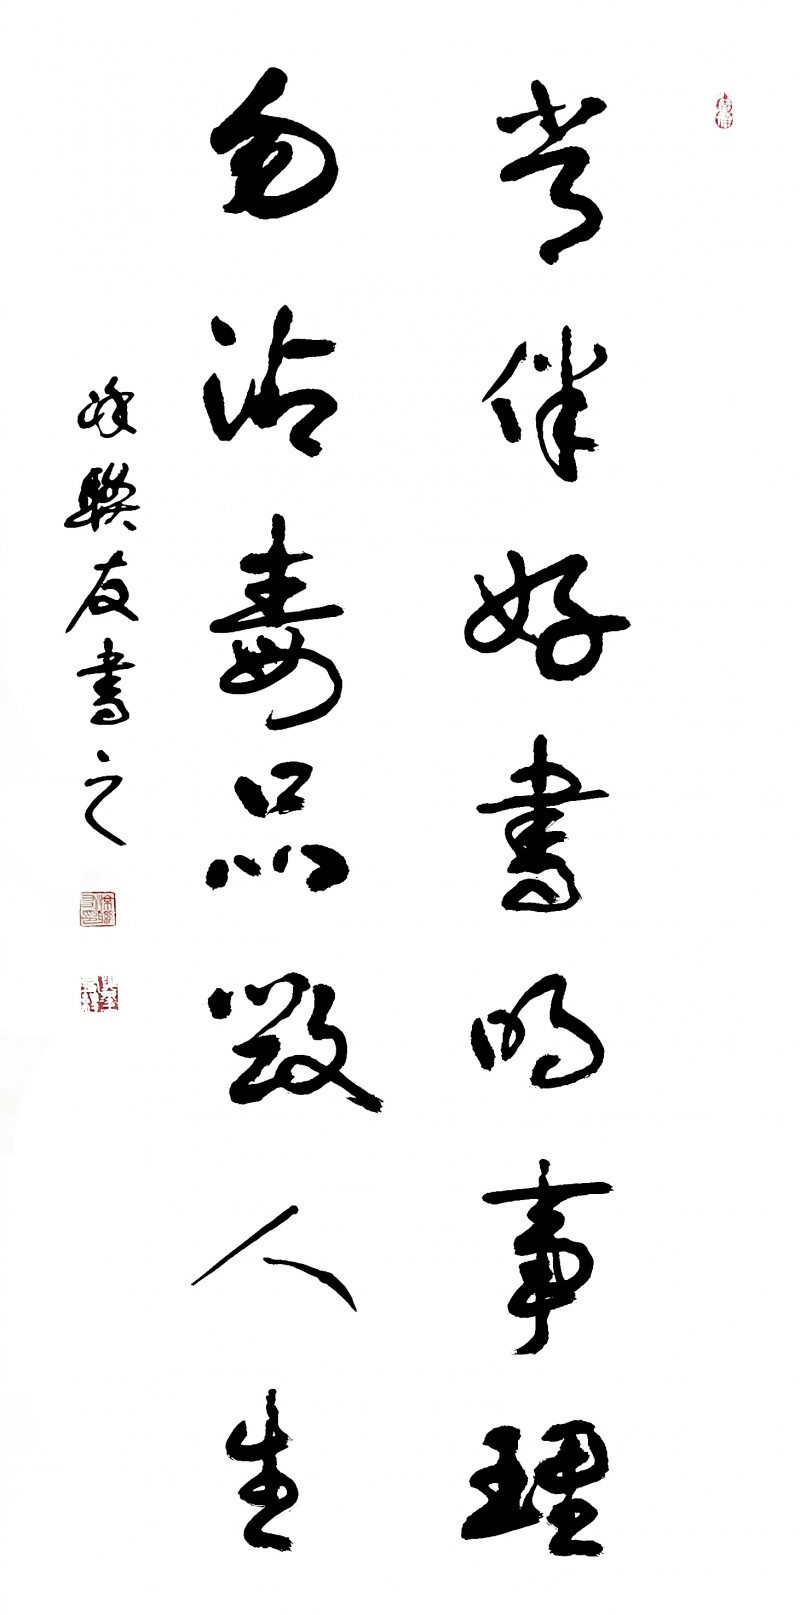 常伴好書明事理
勿沾毒品毀人生
徐聯友書之